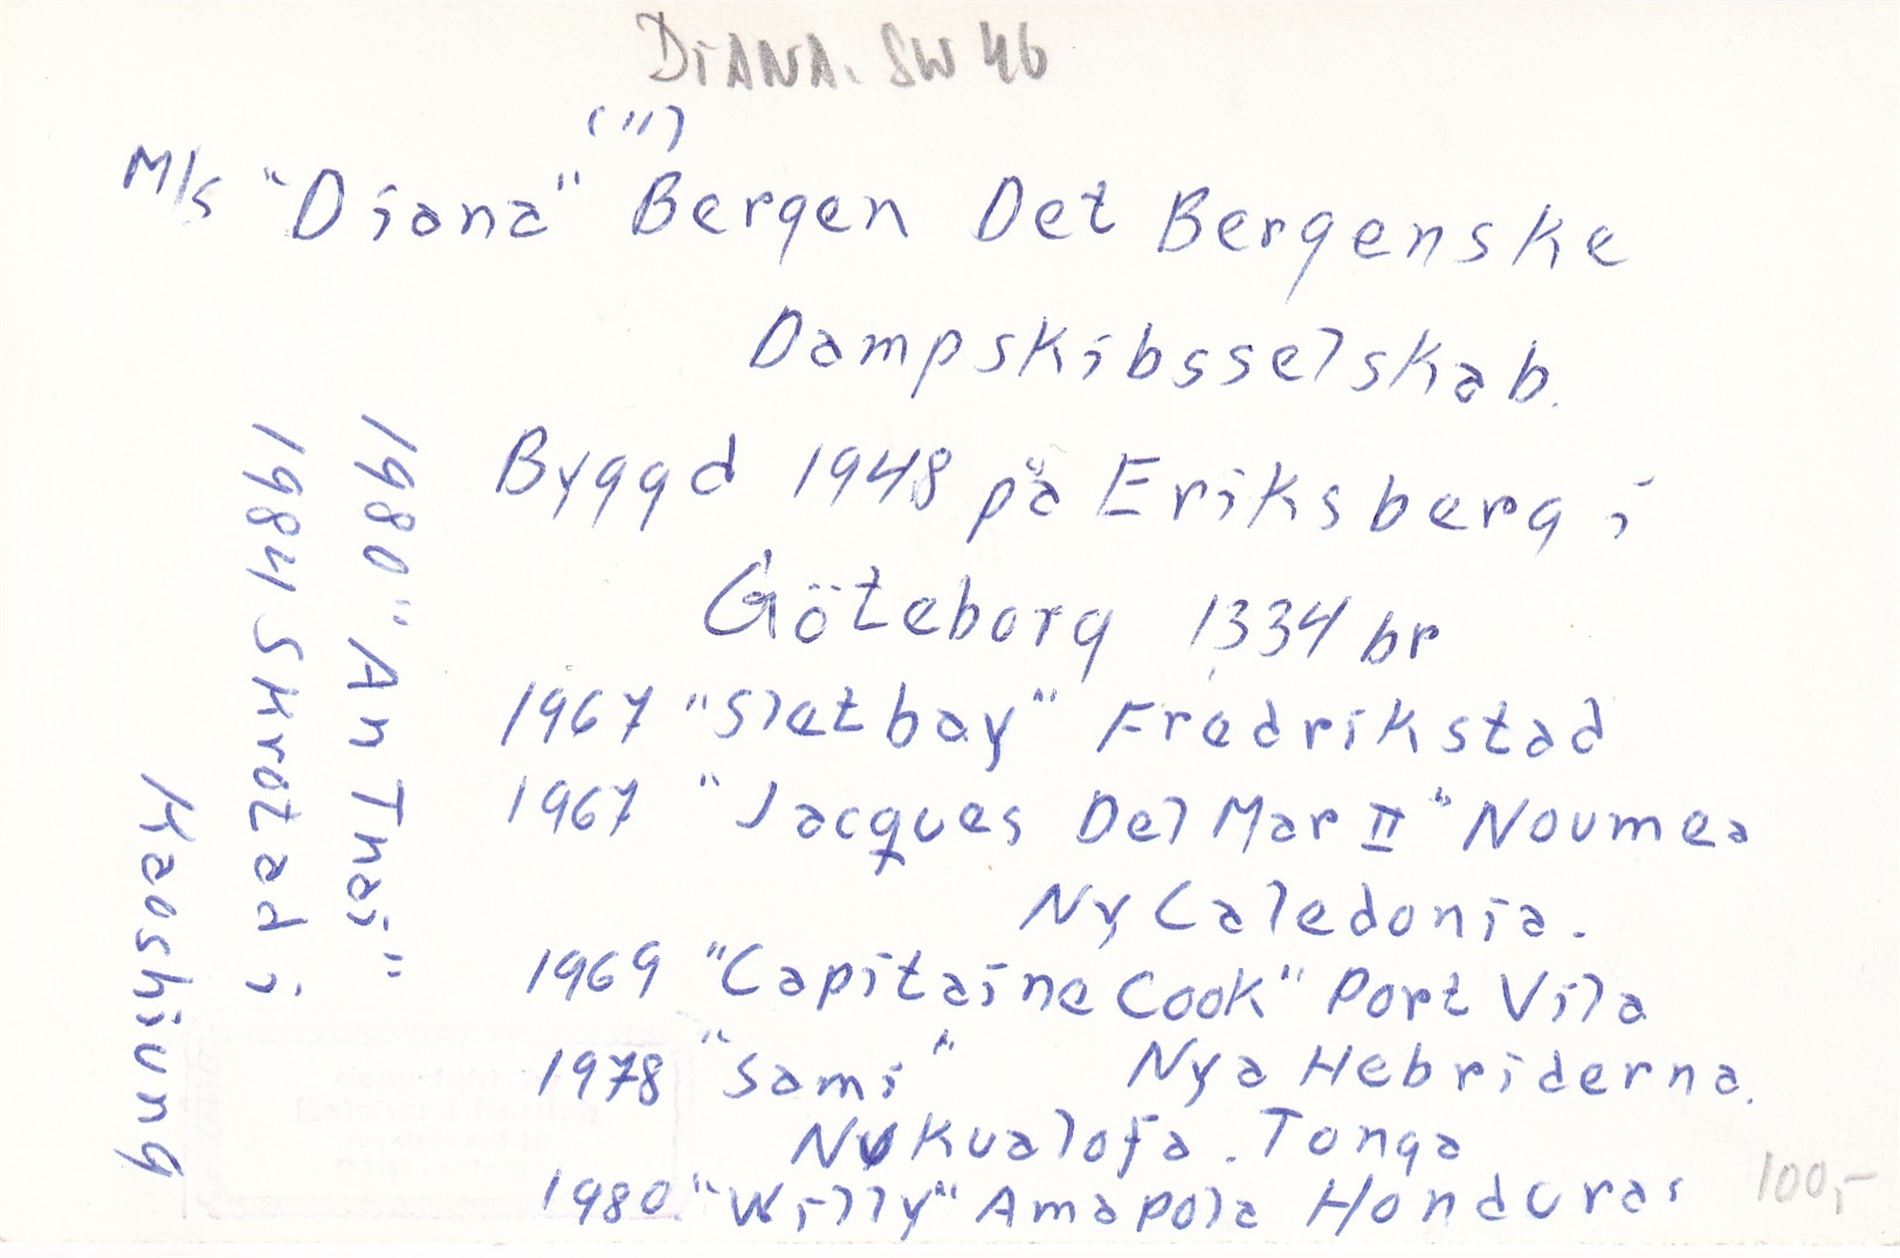 DiANA. SW 46
(")
M/s "Diana" Bergen Det Bergenske
Dampskibsselskab.
Byggd 1948 på Eriksberg i
Göteborg 1334 br
1967 "Sletbay" Fredrikstad
1967 "Jacques Del Mar II" Noumea
Ny Caledonia.
1969 "Capitaine Cook" Port Vila
1978 "Sami" Nya Hebriderna.
Nukualofa. Tonga
1980 "Willy" Amapola Honduras
100,-
1980 "An Thai"
1984 Skrotad i
Kaoshiung